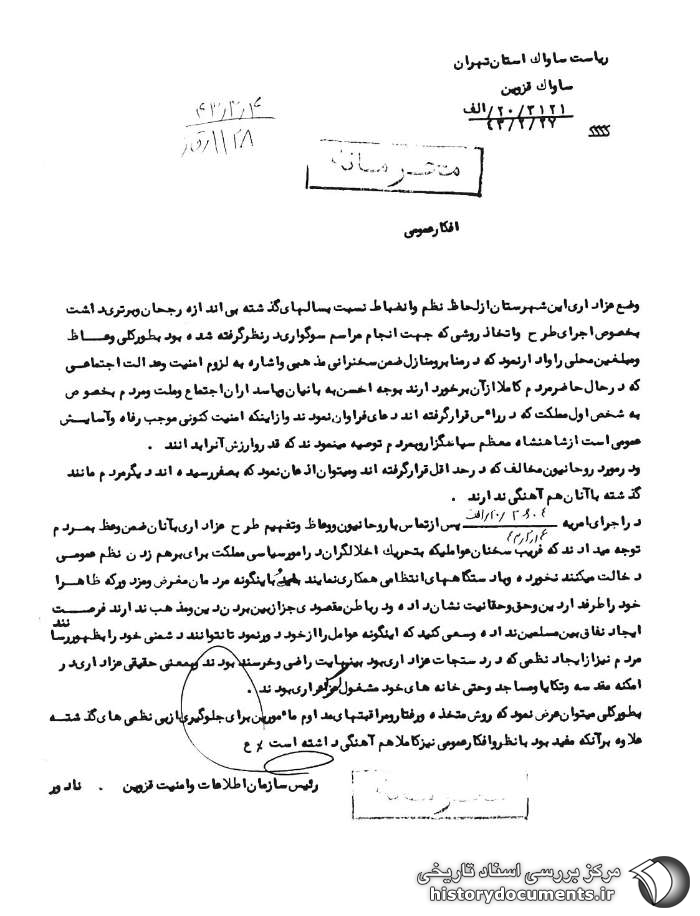 ریاست ساواک استان تهران
ساواک قزوین
۲۰/۳۱۲۱/الف
۴۳/۲/۲۷
۴۳/۳/۴
محرمانه
افکار عمومی
وضع عزاداری این شهرستان از لحاظ نظم وانضباط نسبت بسالهای گذشته بی اندازه رجحان وبرتری داشت
بخصوص اجرای طرح واتخاذ روشی که جهت انجام مراسم سوگواری درنظر گرفته شده بود بطورکلی وعاظ
ومبلغین محلی را وادار نمود که در منابر ومنازل ضمن سخنرانی مذهبی واشاره به لزوم امنیت وعدالت اجتماعی
که درحال حاضر مردم کاملا از آن برخوردارند بوجه احسن به بانیان وپاسداران اجتماع وملت ومردم بخصوص
به شخص اول مملکت که در رأس قرار گرفته اند دعای فراوان نمودند واز اینکه امنیت کنونی موجب رفاه وآسایش
عمومی است از شاهنشاه معظم سپاسگزار وبمردم توصیه مینمودند که قدر وارزش آنرا بدانند .
ودر مورد روحانیون مخالف که در حداقل قرار گرفته اند ومیتوان اذعان نمود که بصفر رسیده اند دیگر مردم مانند
گذشته با آنان هم آهنگی ندارند .
در اجرای امریه پس از تماس با روحانیون ووعاظ وتفهیم طرح عزاداری بآنان ضمن وعظ بمردم
توجه میدادند که فریب سخنان عواملیکه بتحریک اخلالگران در امور سیاسی مملکت برای برهم زدن نظم عمومی
دخالت میکنند نخورده وبا دستگاههای انتظامی همکاری نمایند باینگونه مردمان مغرض ومزدور که ظاهرا
خود را طرفدار دین وحق وحقانیت نشان داده ودر باطن مقصودی جز از بین بردن دین ومذهب ندارند فرصت
ایجاد نفاق بین مسلمین نداده وسعی کنید که اینگونه عوامل را از خود دور نمود تا نتوانند دشمنی خود را بظهور رسانند
مردم نیز از ایجاد نظمی که در دستجات عزاداری بود بینهایت راضی وخرسند بودند وبمعنی حقیقی عزاداری در
امکنه مقدسه وتکایا ومساجد وحتی خانه های خود مشغول عزاداری بودند .
بطورکلی میتوان عرض نمود که روش متخذه ورفتار ومراقبتهای مداوم مأمورین برای جلوگیری از بی نظمی های گذشته
علاوه بر آنکه مفید بود با نظر وافکار عمومی نیز کاملا هم آهنگی داشته است ٪ ع
رئیس سازمان اطلاعات وامنیت قزوین . نادور
محرمانه
مرکز بررسی اسناد تاریخی
historydocuments.ir